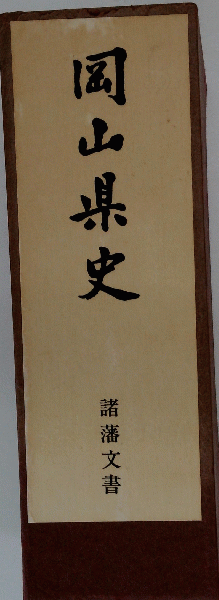 岡山県史
諸藩文書